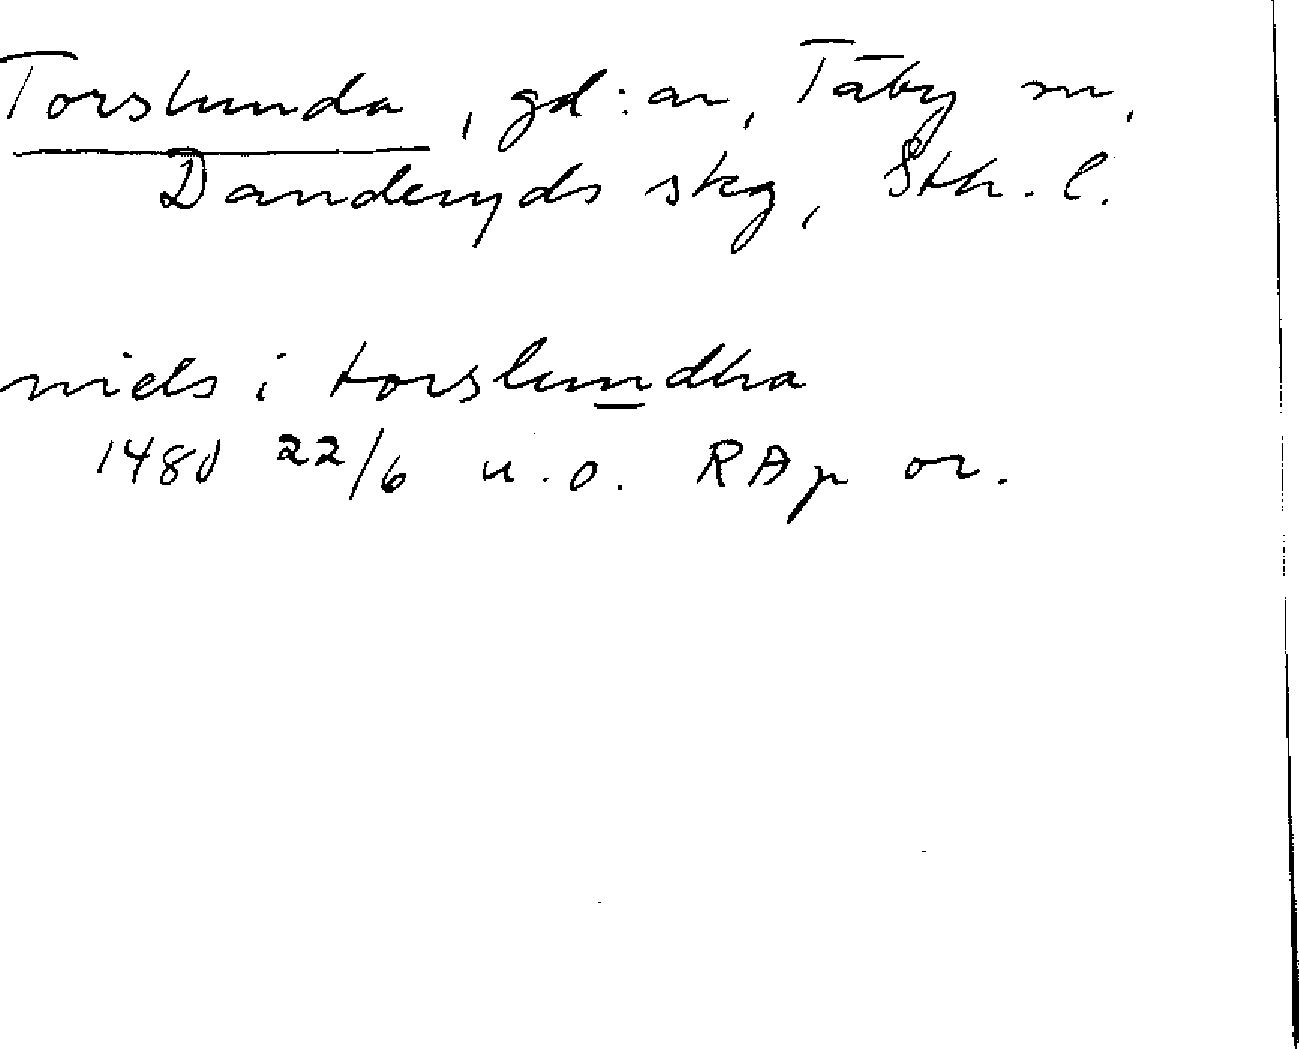 Torslunda, gd:ar, Täby sn,
Danderyds skg, Sthr. l.
niels i torslundha
1480 22/6 u.o. RAp or.